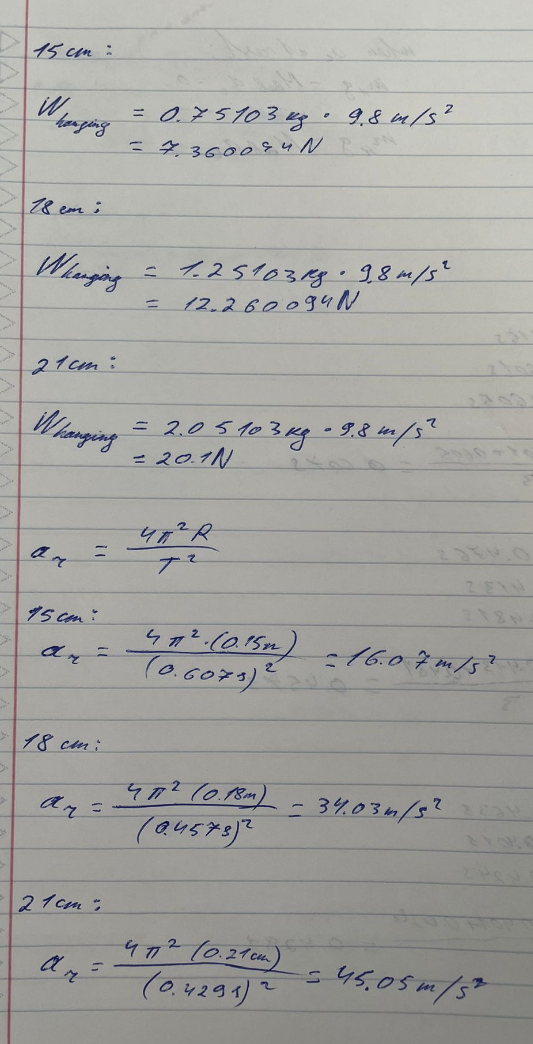 15cm:
W hanging = 0.75103 kg · 9.8 m/s²
= 7.360094 N
18cm:
W hanging = 1.25103 kg · 9.8 m/s²
= 12.260094 N
21cm:
W hanging = 2.05103 kg · 9.8 m/s²
= 20.1 N
a_r = 4π²R / T²
15cm:
a_r = 4π²·(0.15m) / (0.607s)² = 16.07 m/s²
18cm:
a_r = 4π²(0.18m) / (0.457s)² = 34.03 m/s²
21cm:
a_r = 4π²(0.21cm) / (0.429s)² = 45.05 m/s²